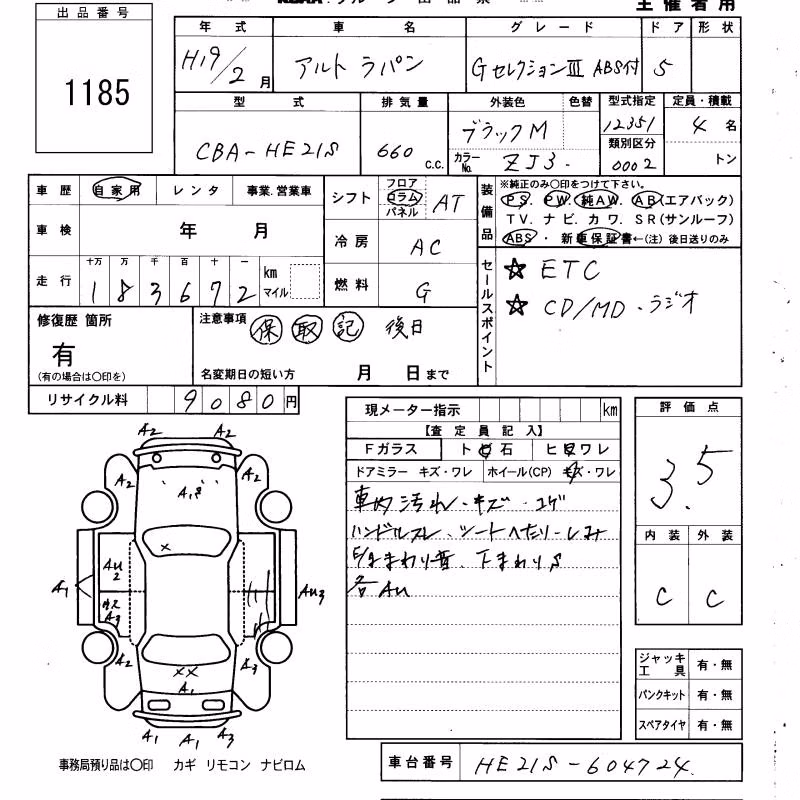 出品番号
1185
主催者用
年式 車名 グレード ドア 形状
H19/2月 アルト ラパン GセレクションⅢ ABS付 5
型式 排気量 外装色 色替 型式指定 定員・積載
CBA-HE21S 660 c.c. ブラックM 12351 4名
カラーNo. ZJ3. 類別区分 0002 トン
車歴 自家用 レンタ 事業.営業車
車検 年 月
走行 十万 万 千 百 十 一 km マイル
1 8 3 6 7 2
シフト フロア コラム パネル AT
冷房 AC
燃料 G
装備品
※純正のみ〇印をつけて下さい。
PS. PW. 純AW. AB(エアバック)
TV. ナビ. カワ. SR(サンルーフ)
ABS ・ 新車保証書←(注) 後日送りのみ
セールスポイント
☆ ETC
☆ CD/MD・ラジオ
修復歴 箇所
有
(有の場合は〇印を)
注意事項 保 取 記 後日
名変期日の短い方 月 日まで
リサイクル料 9080円
現メーター指示 km
【査定員記入】
Fガラス ト石 ヒワレ
ドアミラー キズ・ワレ ホイール(CP) キズ・ワレ
車内汚れ・キズ・コゲ
ハンドルスレ、シートへたり・しみ
まわり音、下まわりS
各AU
評価点
3.5
内装 外装
C C
A2 A2
A2 A2
A1S
×
AU2
A1 AU3
A3
A2 A3
××
A1
A1 A1 A3
ジャッキ工具 有・無
パンクキット 有・無
スペアタイヤ 有・無
事務局預り品は〇印 カギ リモコン ナビロム
車台番号 HE21S-604724